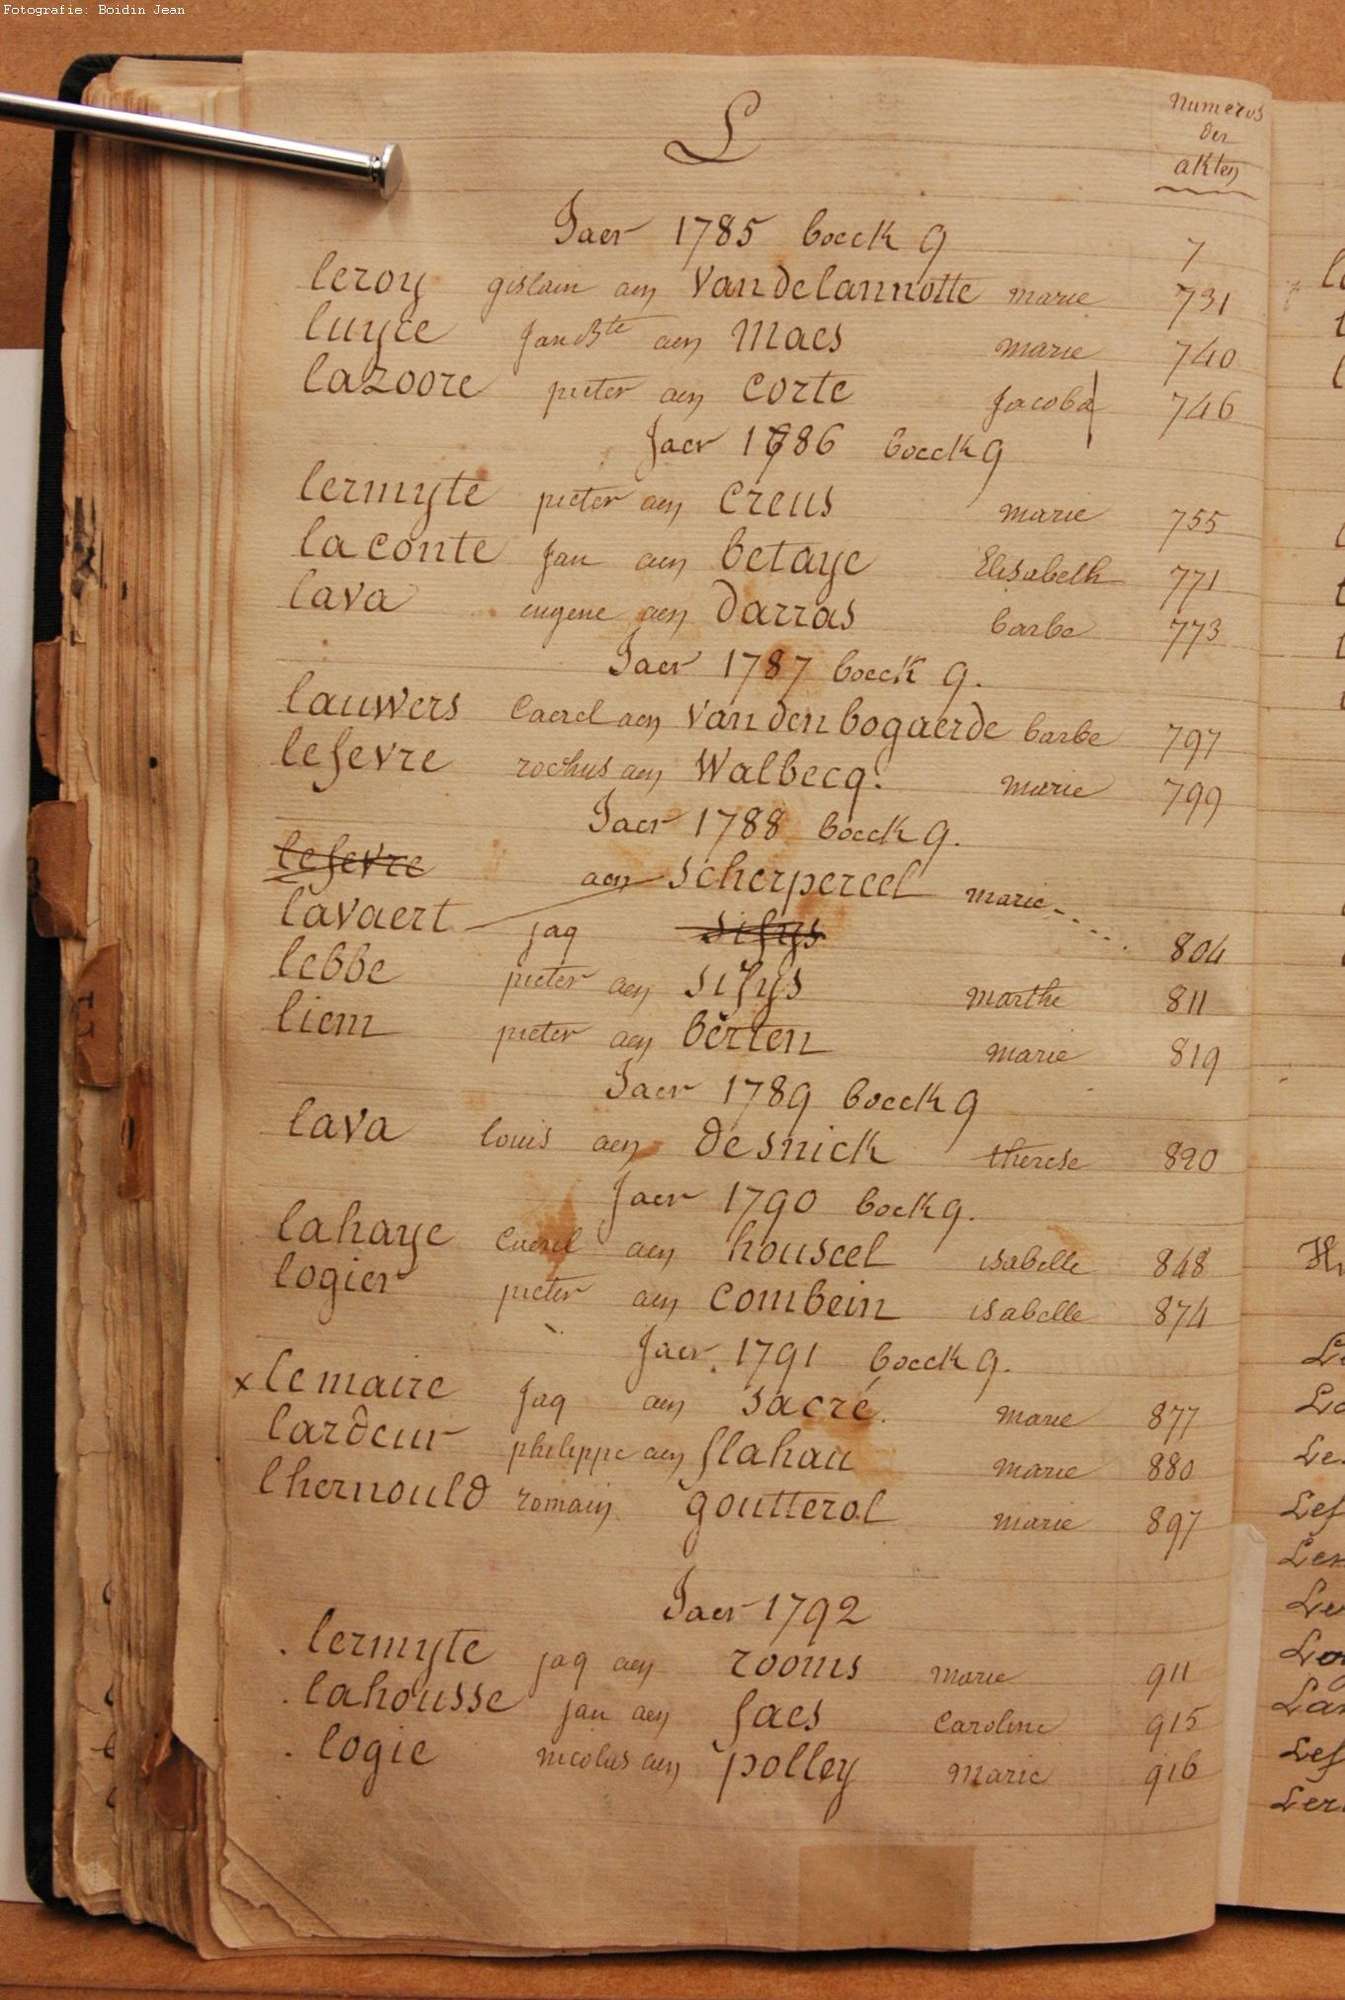 Fotografie: Boidin Jean
L
Numeros
der
akten
Jaer 1785 boeck 9 7
leroy gislain aen Vandelannotte marie 731
luyce Jan Bte aen Maes marie 740
lazoore pieter aen Corte Jacoba 746
Jaer 1786 boeck 9
lermyte pieter aen Creus marie 755
laconte Jan aen betaye Elisabeth 771
lava eugene aen Darras barbe 773
Jaer 1787 boeck 9.
lauwers Caerel aen Vandenbogaerde barbe 797
lefevre rochus aen Walbecq. marie 799
Jaer 1788 boeck 9.
lefevre aen Scherpereel marie
lavaert jaq sifys 804
lebbe pieter aen sifys marthe 811
liem pieter aen berten marie 819
Jaer 1789 boeck 9
lava louis aen desnick therese 820
Jaer 1790 boek 9.
lahaye Caerel aen houseel isabelle 848
logier pieter aen Combein isabelle 874
Jaer 1791 boeck 9.
x lemaire Jaq aen sacré. marie 877
lardeur philippe aen flahau marie 880
lhernould romain goutterol marie 897
Jaer 1792
. lermyte jaq aen rooms marie 911
. lahousse jan aen faes Caroline 915
. logie nicolas aen polley marie 916